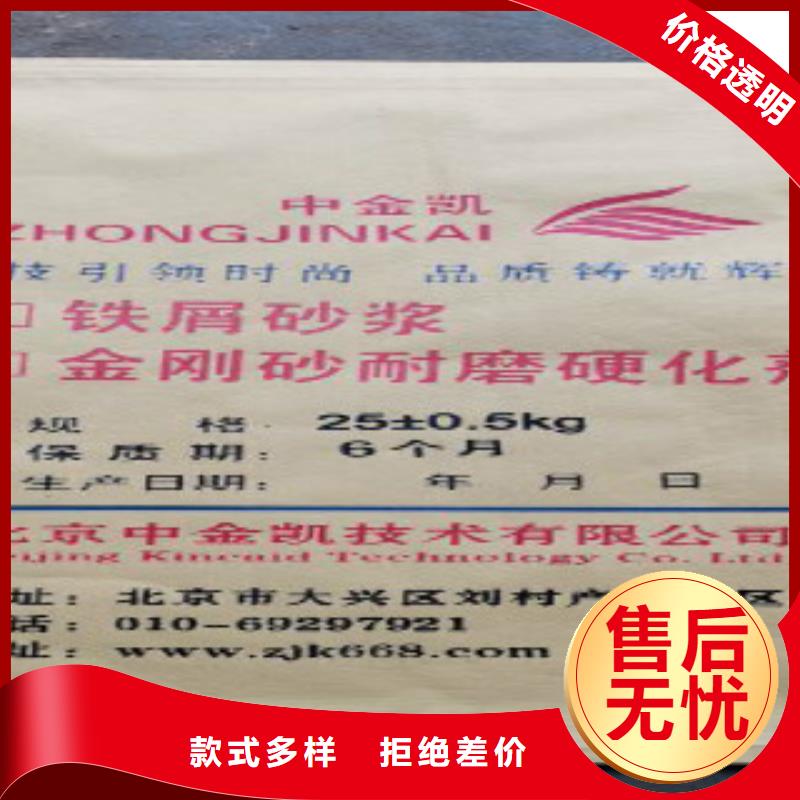 价格透明
中金凯
ZHONGJINKAI
技引领时尚 品质铸就辉
□ 铁屑砂浆
□ 金刚砂耐磨硬化剂
规 格: 25±0.5kg
保质期: 6个月
生产日期: 年 月 日
北京中金凯技术有限公司
Beijing Kincaid Technology Co. Ltd
址: 北京市大兴区刘村 区
话: 010-69297921
址: www.zjk668.com
售后
无忧
款式多样 拒绝差价